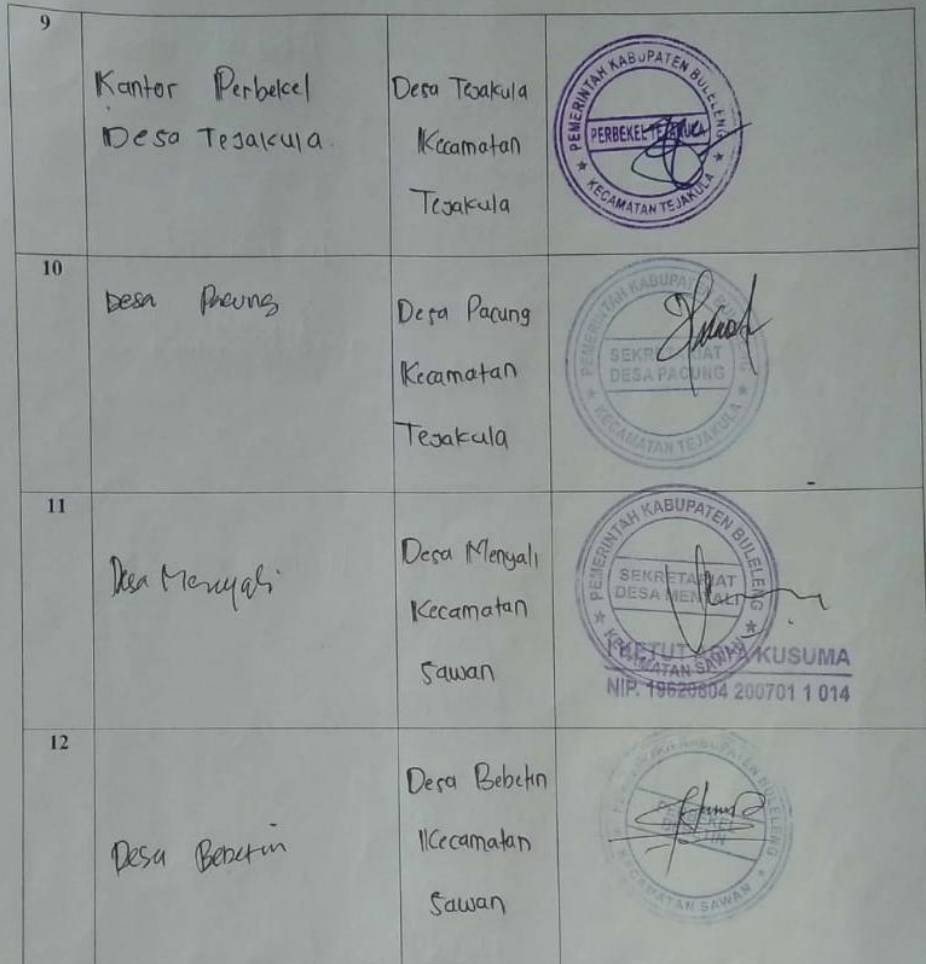 9
Kantor Perbekel
Desa Tejakula
Desa Tejakula
Kecamatan
Tejakula
PEMERINTAH KABUPATEN BULELENG
PERBEKEL TEJAKULA
KECAMATAN TEJAKULA
10
Desa Pacung
Desa Pacung
Kecamatan
Tejakula
PEMERINTAH KABUPATEN BULELENG
SEKRETARIAT
DESA PACUNG
KECAMATAN TEJAKULA
11
Desa Menyali
Desa Menyali
Kecamatan
Sawan
PEMERINTAH KABUPATEN BULELENG
SEKRETARIAT
DESA MENYALI
KECAMATAN SAWAN
KETUT KUSUMA
NIP. 19620804 200701 1 014
12
Desa Bebetin
Desa Bebetin
Kecamatan
Sawan
PEMERINTAH KABUPATEN BULELENG
PERBEKEL
BEBETIN
KECAMATAN SAWAN